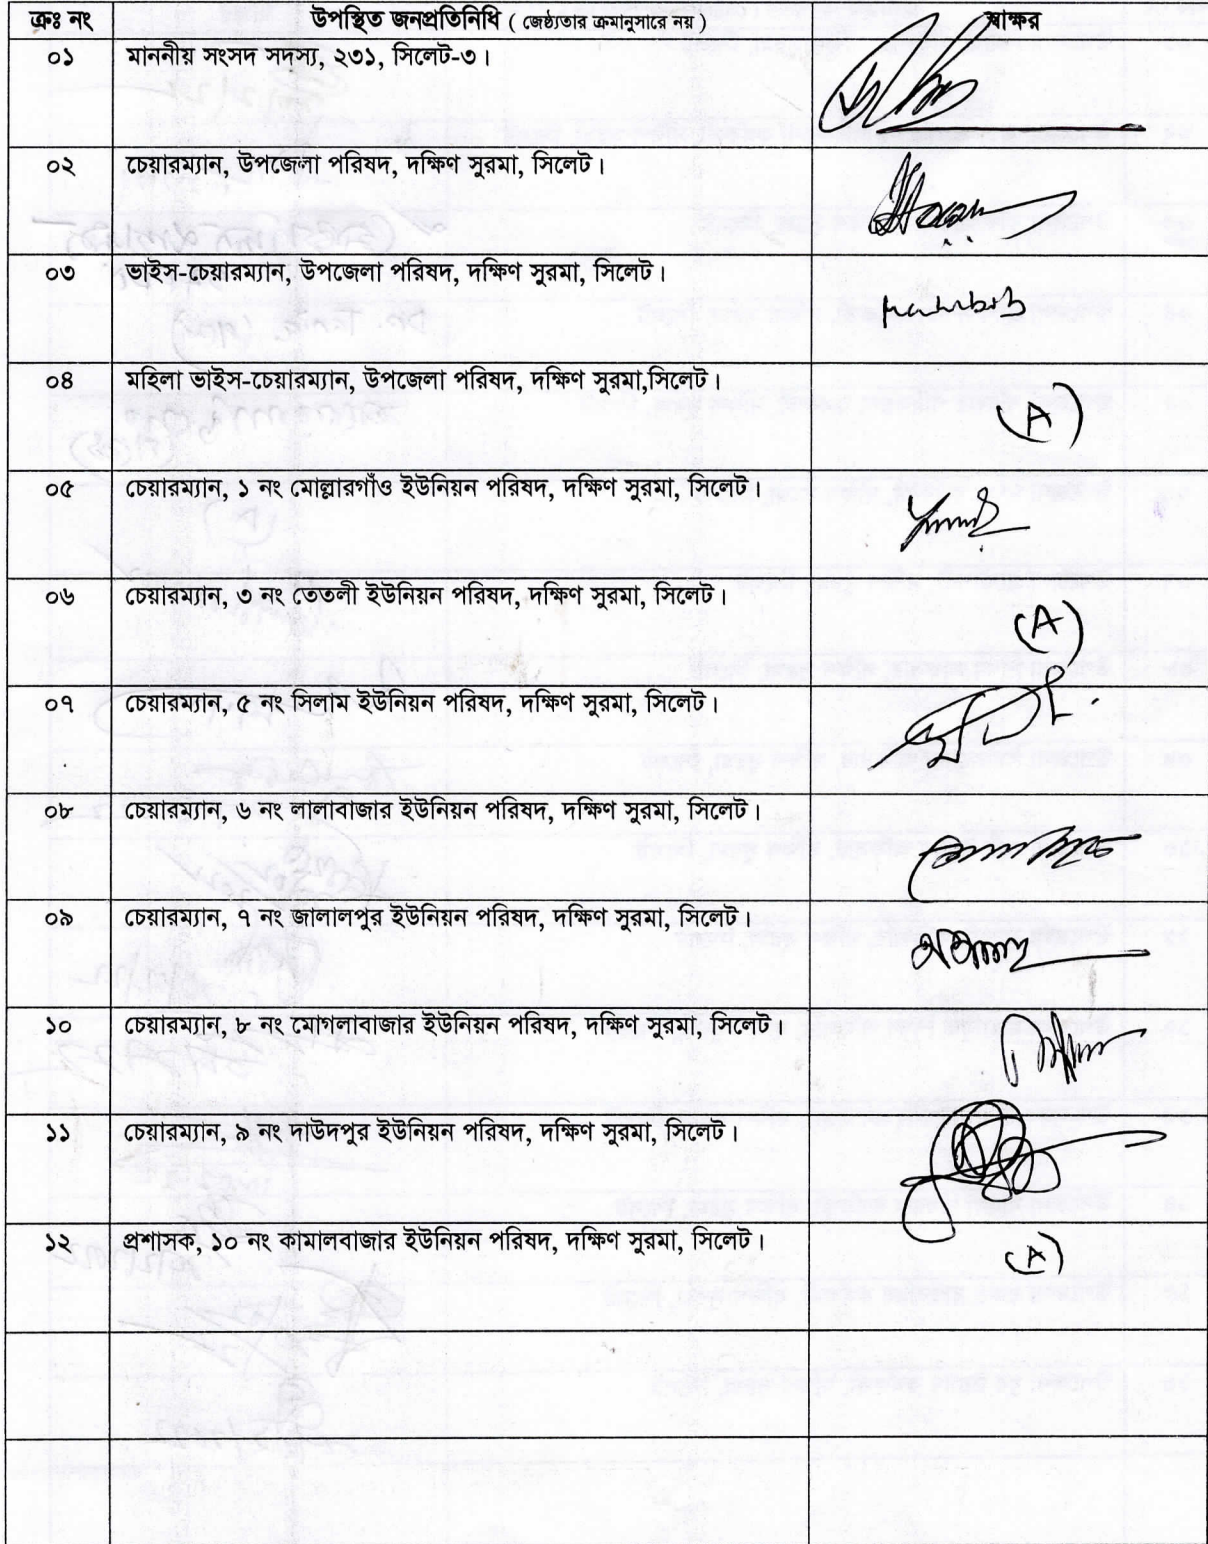 ক্রঃ নং উপস্থিত জনপ্রতিনিধি ( জেষ্ঠ্যতার ক্রমানুসারে নয় ) স্বাক্ষর
০১ মাননীয় সংসদ সদস্য, ২৩১, সিলেট-৩।
০২ চেয়ারম্যান, উপজেলা পরিষদ, দক্ষিণ সুরমা, সিলেট।
০৩ ভাইস-চেয়ারম্যান, উপজেলা পরিষদ, দক্ষিণ সুরমা, সিলেট।
০৪ মহিলা ভাইস-চেয়ারম্যান, উপজেলা পরিষদ, দক্ষিণ সুরমা,সিলেট। (A)
০৫ চেয়ারম্যান, ১ নং মোল্লারগাঁও ইউনিয়ন পরিষদ, দক্ষিণ সুরমা, সিলেট।
০৬ চেয়ারম্যান, ৩ নং তেতলী ইউনিয়ন পরিষদ, দক্ষিণ সুরমা, সিলেট। (A)
০৭ চেয়ারম্যান, ৫ নং সিলাম ইউনিয়ন পরিষদ, দক্ষিণ সুরমা, সিলেট।
০৮ চেয়ারম্যান, ৬ নং লালাবাজার ইউনিয়ন পরিষদ, দক্ষিণ সুরমা, সিলেট।
০৯ চেয়ারম্যান, ৭ নং জালালপুর ইউনিয়ন পরিষদ, দক্ষিণ সুরমা, সিলেট।
১০ চেয়ারম্যান, ৮ নং মোগলাবাজার ইউনিয়ন পরিষদ, দক্ষিণ সুরমা, সিলেট।
১১ চেয়ারম্যান, ৯ নং দাউদপুর ইউনিয়ন পরিষদ, দক্ষিণ সুরমা, সিলেট।
১২ প্রশাসক, ১০ নং কামালবাজার ইউনিয়ন পরিষদ, দক্ষিণ সুরমা, সিলেট। (A)